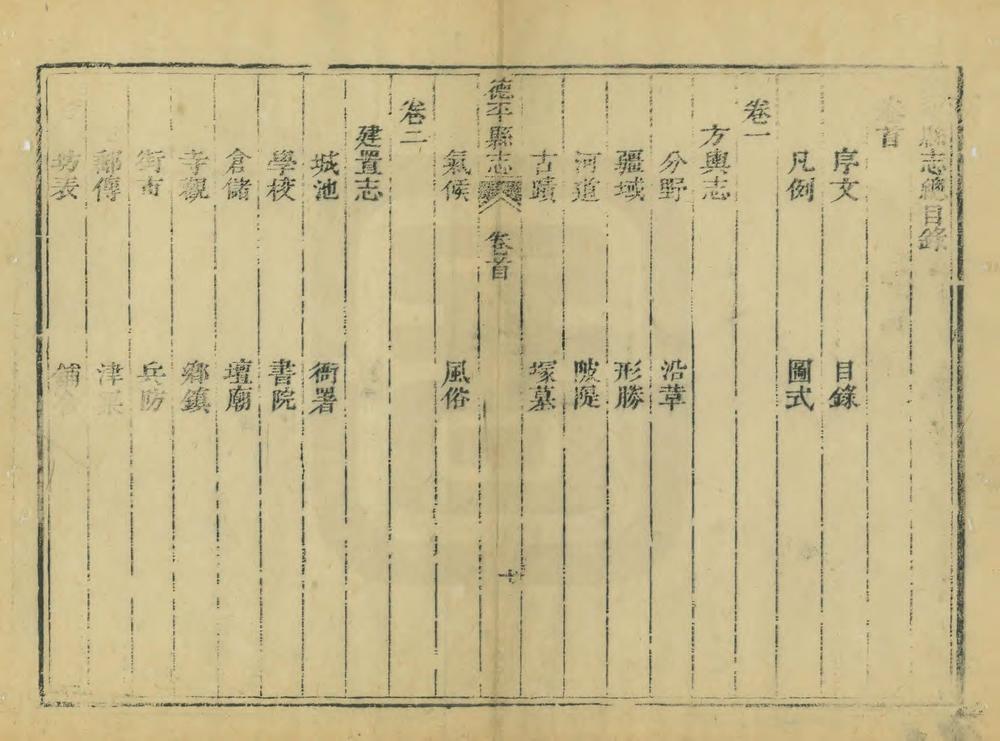 縣志總目錄
卷首
序文 目錄
凡例 圖式
卷一
方輿志
分野 沿革
疆域 形勝
河道 陂隄
古蹟 塚墓
德平縣志 卷首 十
氣候 風俗
卷二
建置志
城池 衙署
學校 書院
倉儲 壇廟
寺觀 鄉鎮
街市 兵防
郵傳 津梁
坊表 舖